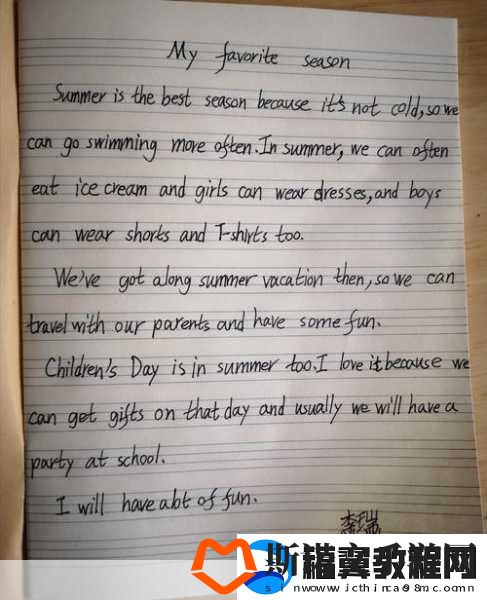 My favorite season
Summer is the best season because it's not cold, so we
can go swimming more often. In summer, we can often
eat ice cream and girls can wear dresses, and boys
can wear shorts and T-shirts too.
We've got along summer vacation then, so we can
travel with our parents and have some fun.
Children's Day is in summer too. I love it because we
can get gifts on that day and usually we will have a
party at school.
I will have a lot of fun.
李瑞
教程网